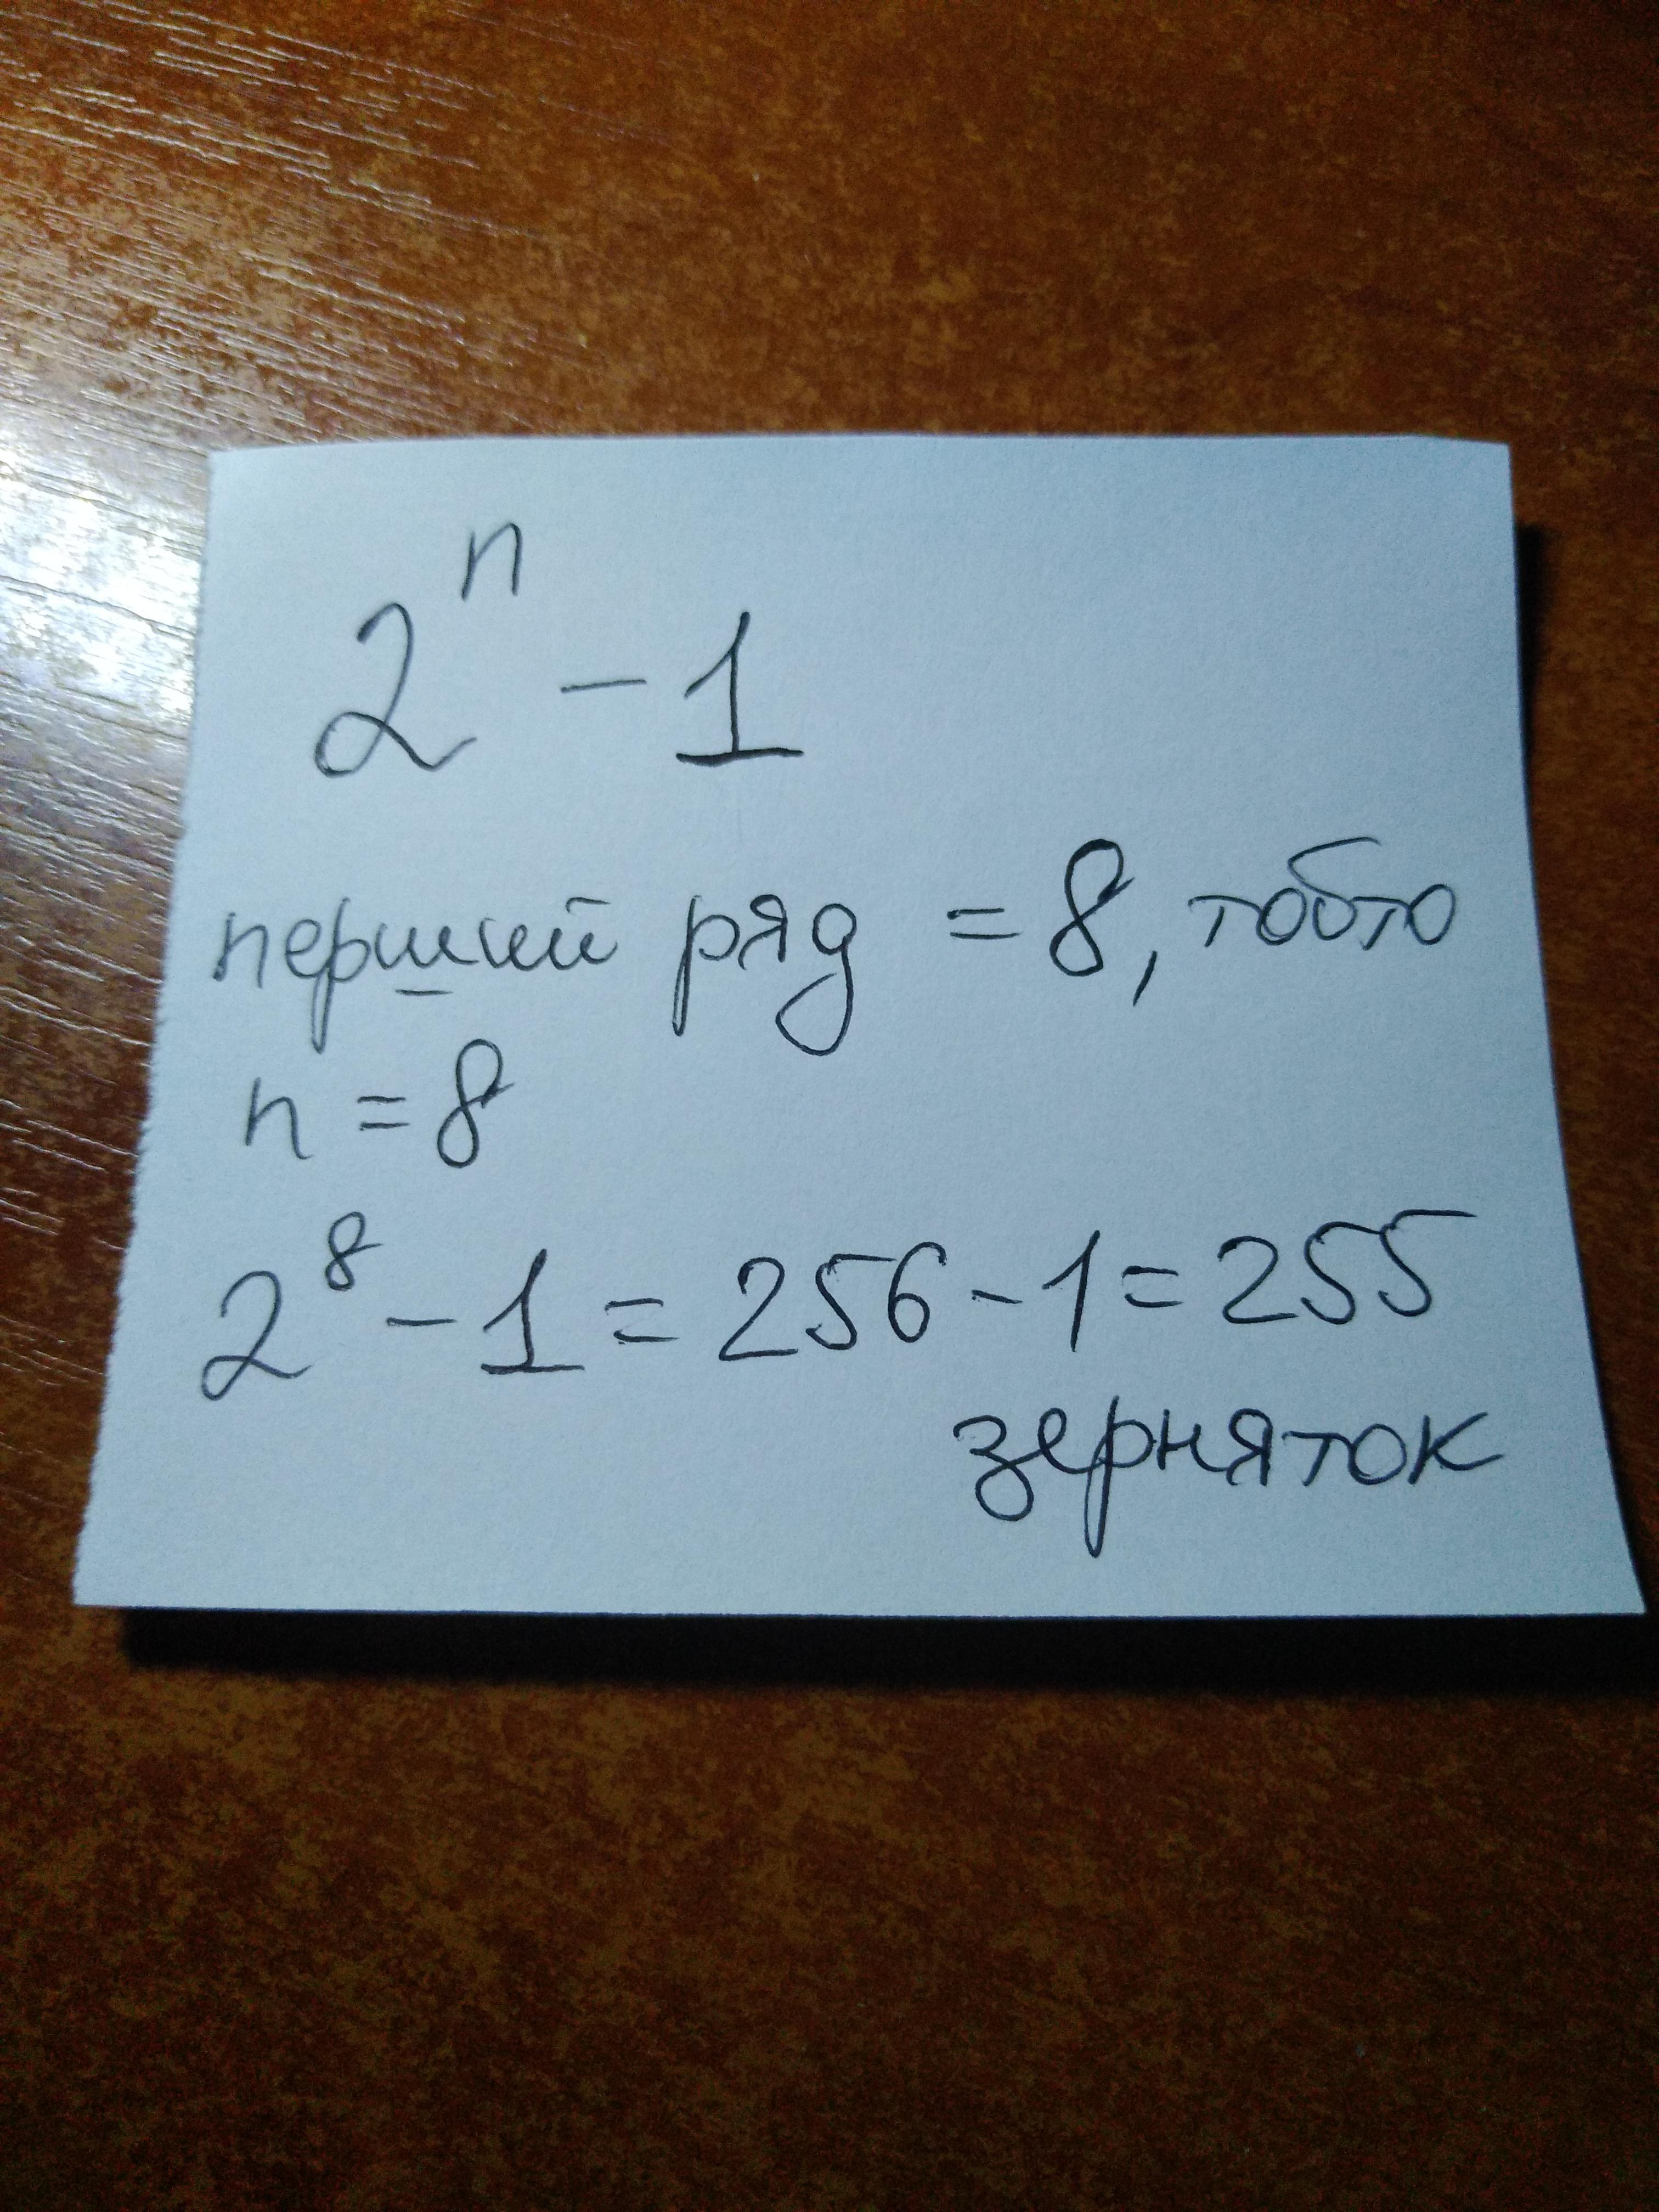 2ⁿ - 1
перший ряд = 8, тобто
n = 8
2⁸ - 1 = 256 - 1 = 255
зерняток